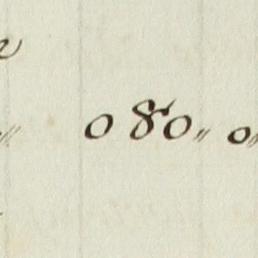 080〃 0〃